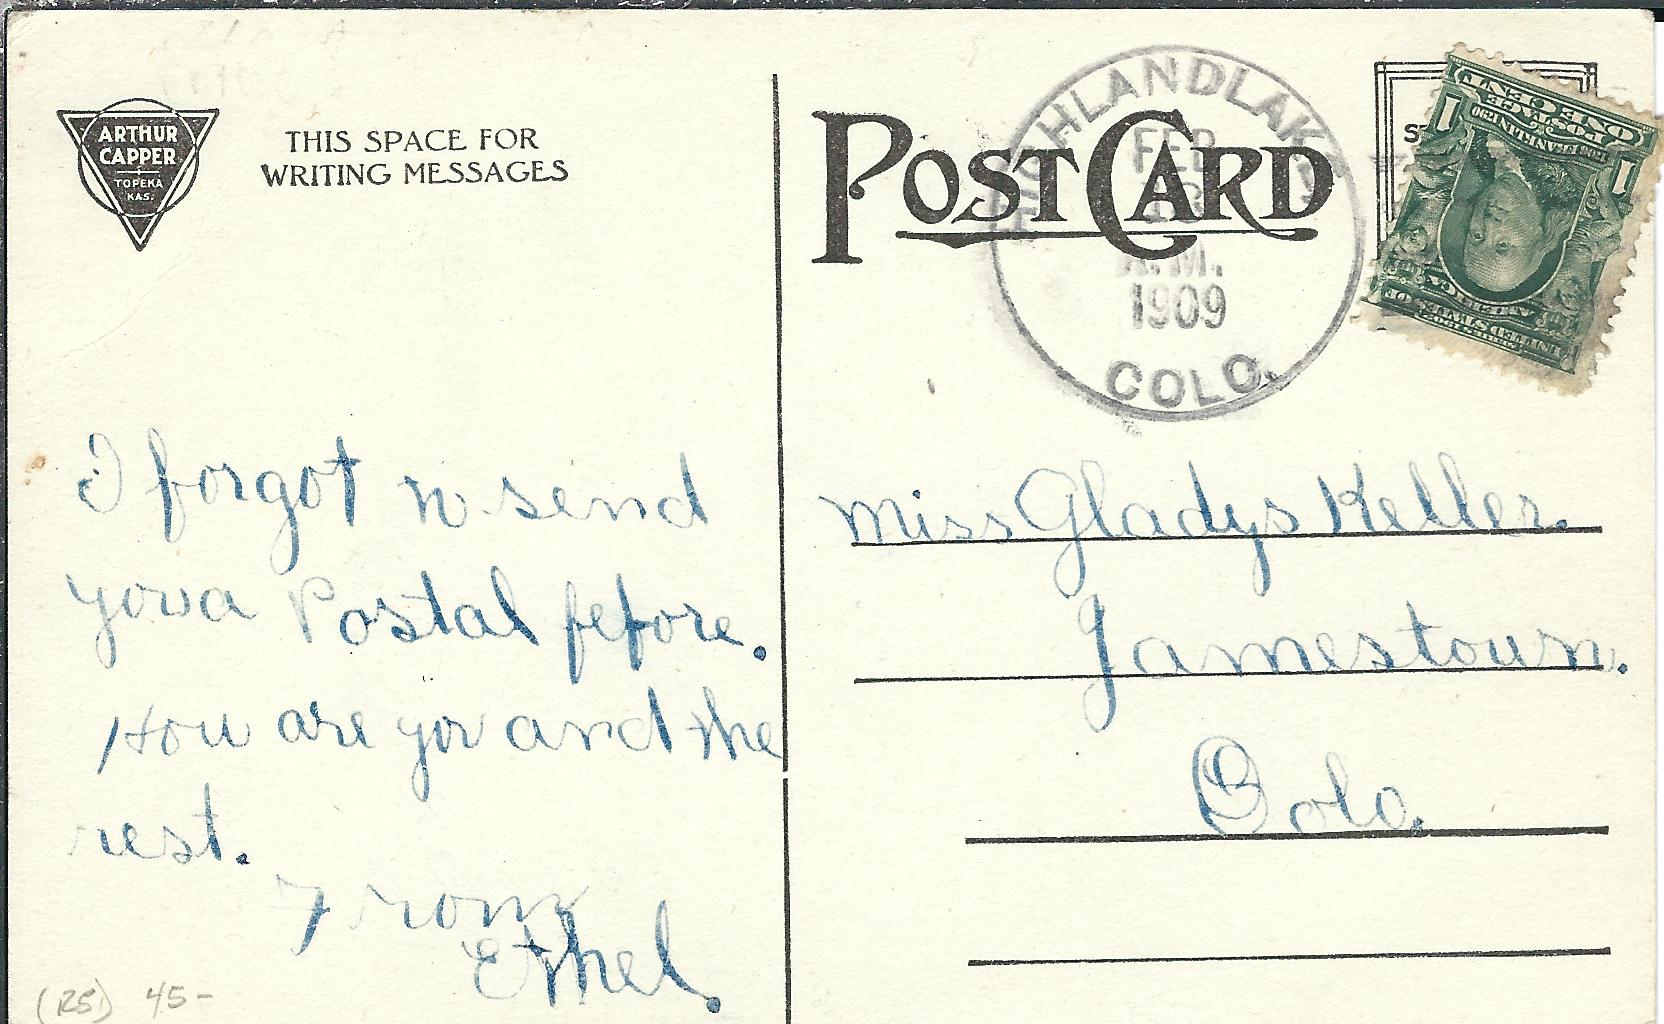 ARTHUR
CAPPER
TOPEKA
KAS.
THIS SPACE FOR
WRITING MESSAGES
POST CARD
HIGHLANDLAKE
FEB
13
A.M.
1909
COLO.
ONE CENT
POSTAGE
1 1
FRANKLIN
SERIES 1902
UNITED STATES OF
AMERICA
I forgot to send
you a Postal fefore.
How are you and the
rest.
From
Ethel.
Miss Gladys Keller.
Jamestown.
Colo.
(RS) 45-